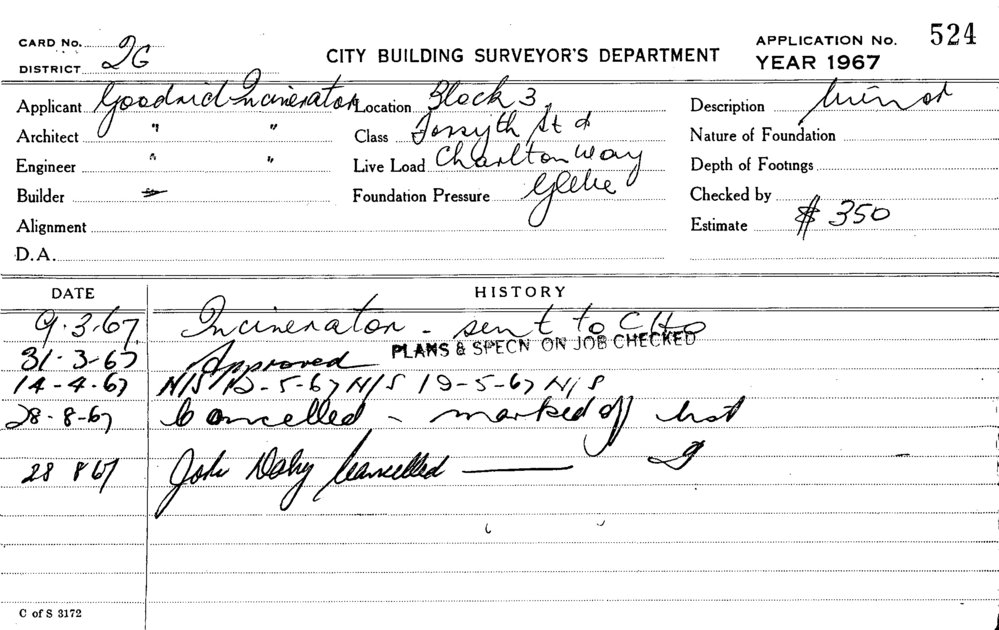 CARD No.
DISTRICT 2G
CITY BUILDING SURVEYOR'S DEPARTMENT
APPLICATION No. 524
YEAR 1967
Applicant Incinerator
Location Block 3,
Description
Architect " "
Class Forsyth St &
Nature of Foundation
Engineer " "
Live Load Charlton Way
Depth of Footings
Builder
Foundation Pressure Glebe
Checked by
Alignment
Estimate $ 350
D.A.
DATE HISTORY
9.3.67 Incinerator - sent to CHO
31-3-67 Approved PLANS & SPECN ON JOB CHECKED
14-4-67 N/S 12-5-67 N/S 19-5-67 N/S
28-8-67 Cancelled - marked off list
28 8 67 John Cancelled
C of S 3172